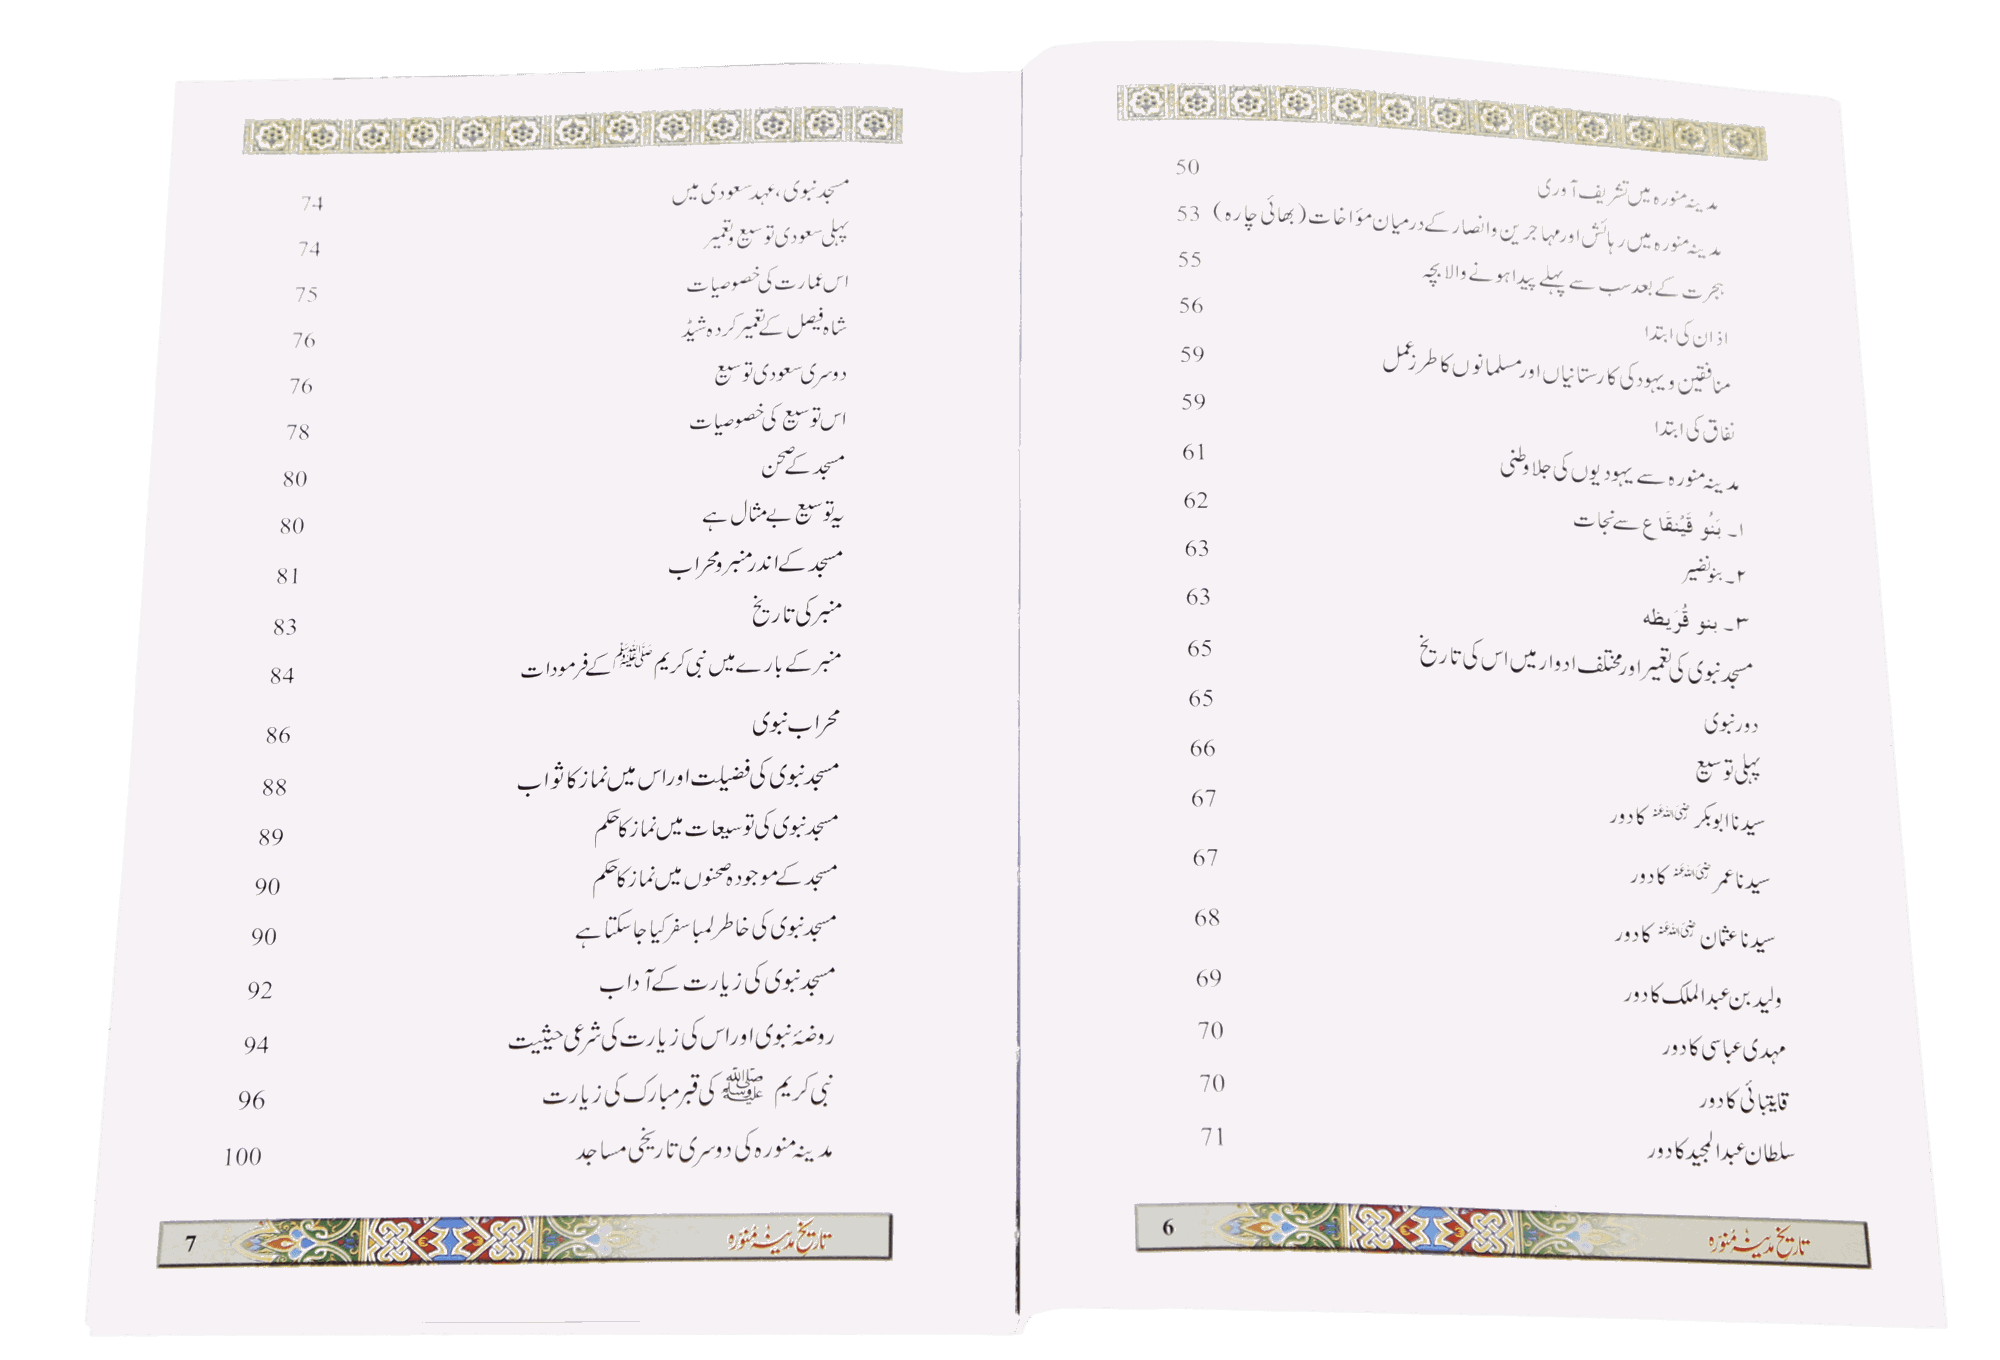 مدینہ منورہ میں تشریف آوری 50
مدینہ منورہ میں رہائش اور مہاجرین و انصار کے درمیان مؤاخات (بھائی چارہ) 53
ہجرت کے بعد سب سے پہلے پیدا ہونے والا بچہ 55
اذان کی ابتدا 56
منافقین و یہود کی کارستانیاں اور مسلمانوں کا طرز عمل 59
نفاق کی ابتدا 59
مدینہ منورہ سے یہودیوں کی جلاوطنی 61
۱۔ بَنُو قَیْنُقَاع سے نجات 62
۲۔ بنو نضیر 63
۳۔ بنو قُرَیظه 63
مسجد نبوی کی تعمیر اور مختلف ادوار میں اس کی تاریخ 65
دور نبوی 65
پہلی توسیع 66
سیدنا ابوبکر رضی اللہ عنہ کا دور 67
سیدنا عمر رضی اللہ عنہ کا دور 67
سیدنا عثمان رضی اللہ عنہ کا دور 68
ولید بن عبدالملک کا دور 69
مہدی عباسی کا دور 70
قایتبائی کا دور 70
سلطان عبدالمجید کا دور 71
تاریخ مدینہ منورہ 6
مسجد نبوی، عہد سعودی میں 74
پہلی سعودی توسیع و تعمیر 74
اس عمارت کی خصوصیات 75
شاہ فیصل کے تعمیر کردہ شیڈ 76
دوسری سعودی توسیع 76
اس توسیع کی خصوصیات 78
مسجد کے صحن 80
یہ توسیع بے مثال ہے 80
مسجد کے اندر منبر و محراب 81
منبر کی تاریخ 83
منبر کے بارے میں نبی کریم ﷺ کے فرمودات 84
محراب نبوی 86
مسجد نبوی کی فضیلت اور اس میں نماز کا ثواب 88
مسجد نبوی کی توسیعات میں نماز کا حکم 89
مسجد کے موجودہ صحنوں میں نماز کا حکم 90
مسجد نبوی کی خاطر لمبا سفر کیا جا سکتا ہے 90
مسجد نبوی کی زیارت کے آداب 92
روضۂ نبوی اور اس کی زیارت کی شرعی حیثیت 94
نبی کریم ﷺ کی قبر مبارک کی زیارت 96
مدینہ منورہ کی دوسری تاریخی مساجد 100
تاریخ مدینہ منورہ 7